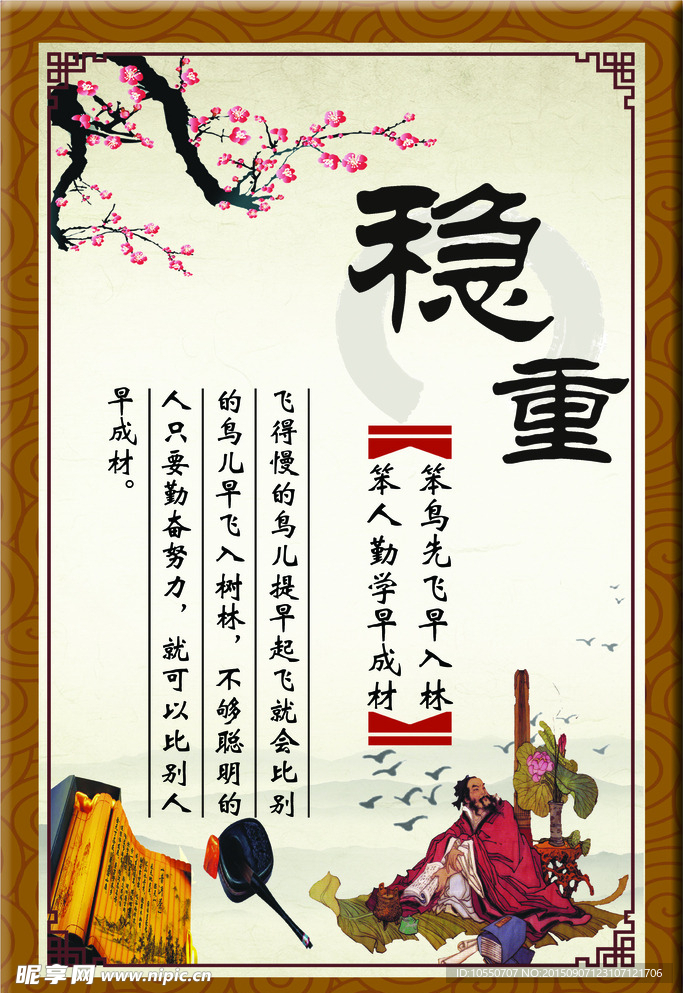 稳重
笨鸟先飞早入林
笨人勤学早成材
飞得慢的鸟儿提早起飞就会比别
的鸟儿早飞入树林，不够聪明的
人只要勤奋努力，就可以比别人
早成材。
昵享网 www.nipic.cn
ID:10550707 NO:20150907123107121706